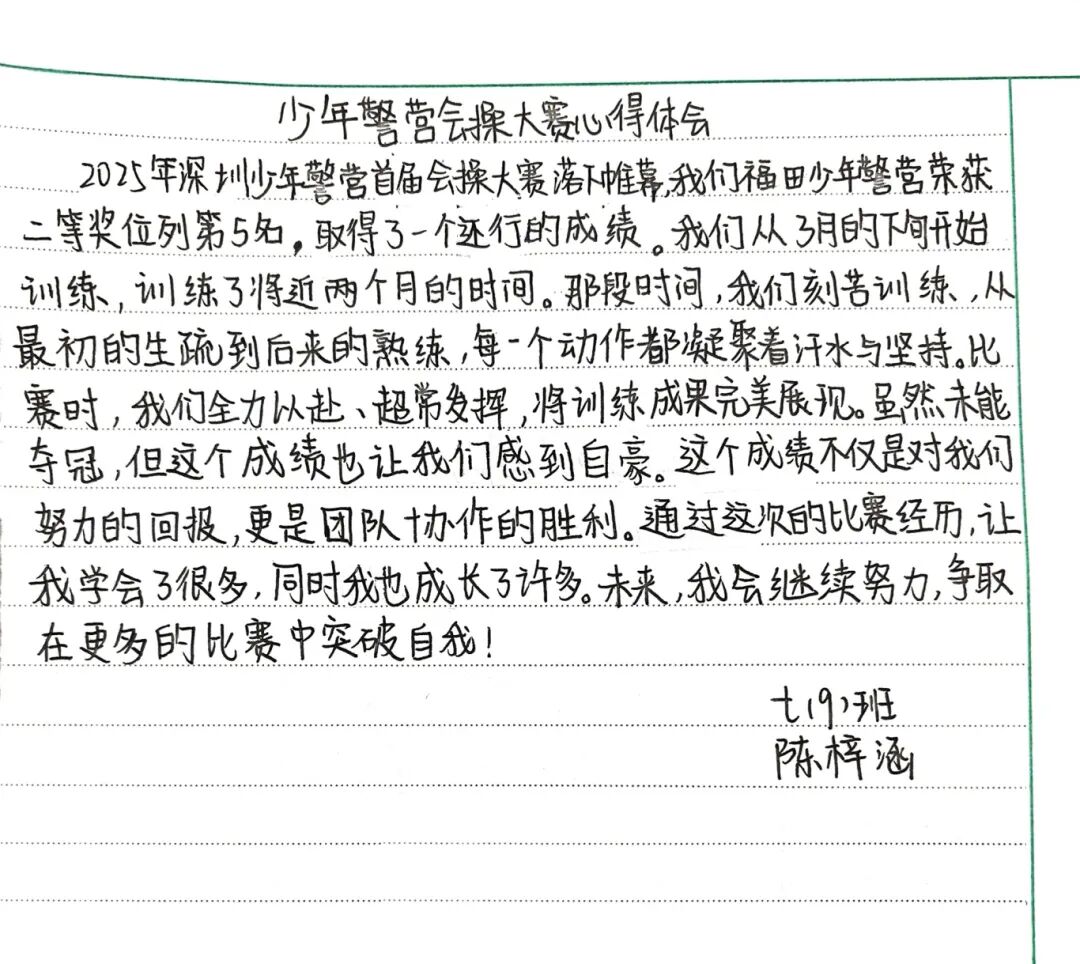 少年警营会操大赛心得体会
2025年深圳少年警营首届会操大赛落下帷幕,我们福田少年警营荣获
二等奖位列第5名,取得了一个还行的成绩。我们从3月的下旬开始
训练,训练了将近两个月的时间。那段时间,我们刻苦训练,从
最初的生疏到后来的熟练,每一个动作都凝聚着汗水与坚持。比
赛时,我们全力以赴、超常发挥,将训练成果完美展现。虽然未能
夺冠,但这个成绩也让我们感到自豪。这个成绩不仅是对我们
努力的回报,更是团队协作的胜利。通过这次的比赛经历,让
我学会了很多,同时我也成长了许多。未来,我会继续努力,争取
在更多的比赛中突破自我!
七(9)班
陈梓涵